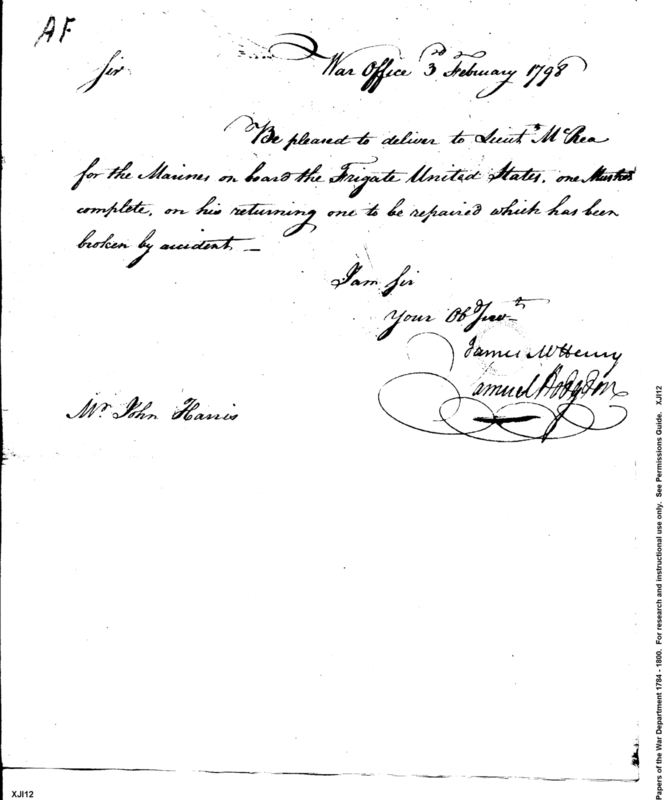 AF
War Office 3rd February 1798
Sir
Be pleased to deliver to Lieut. McRea
for the Marines on board the Frigate United States, one Musket
complete, on his returning one to be repaired which has been
broken by accident –
I am Sir
Your Obd Servt
James McHenry
Samuel Hodgdon
Mr John Harris
Papers of the War Department 1784 - 1800. For research and instructional use only. See Permissions Guide. XJI12
XJI12